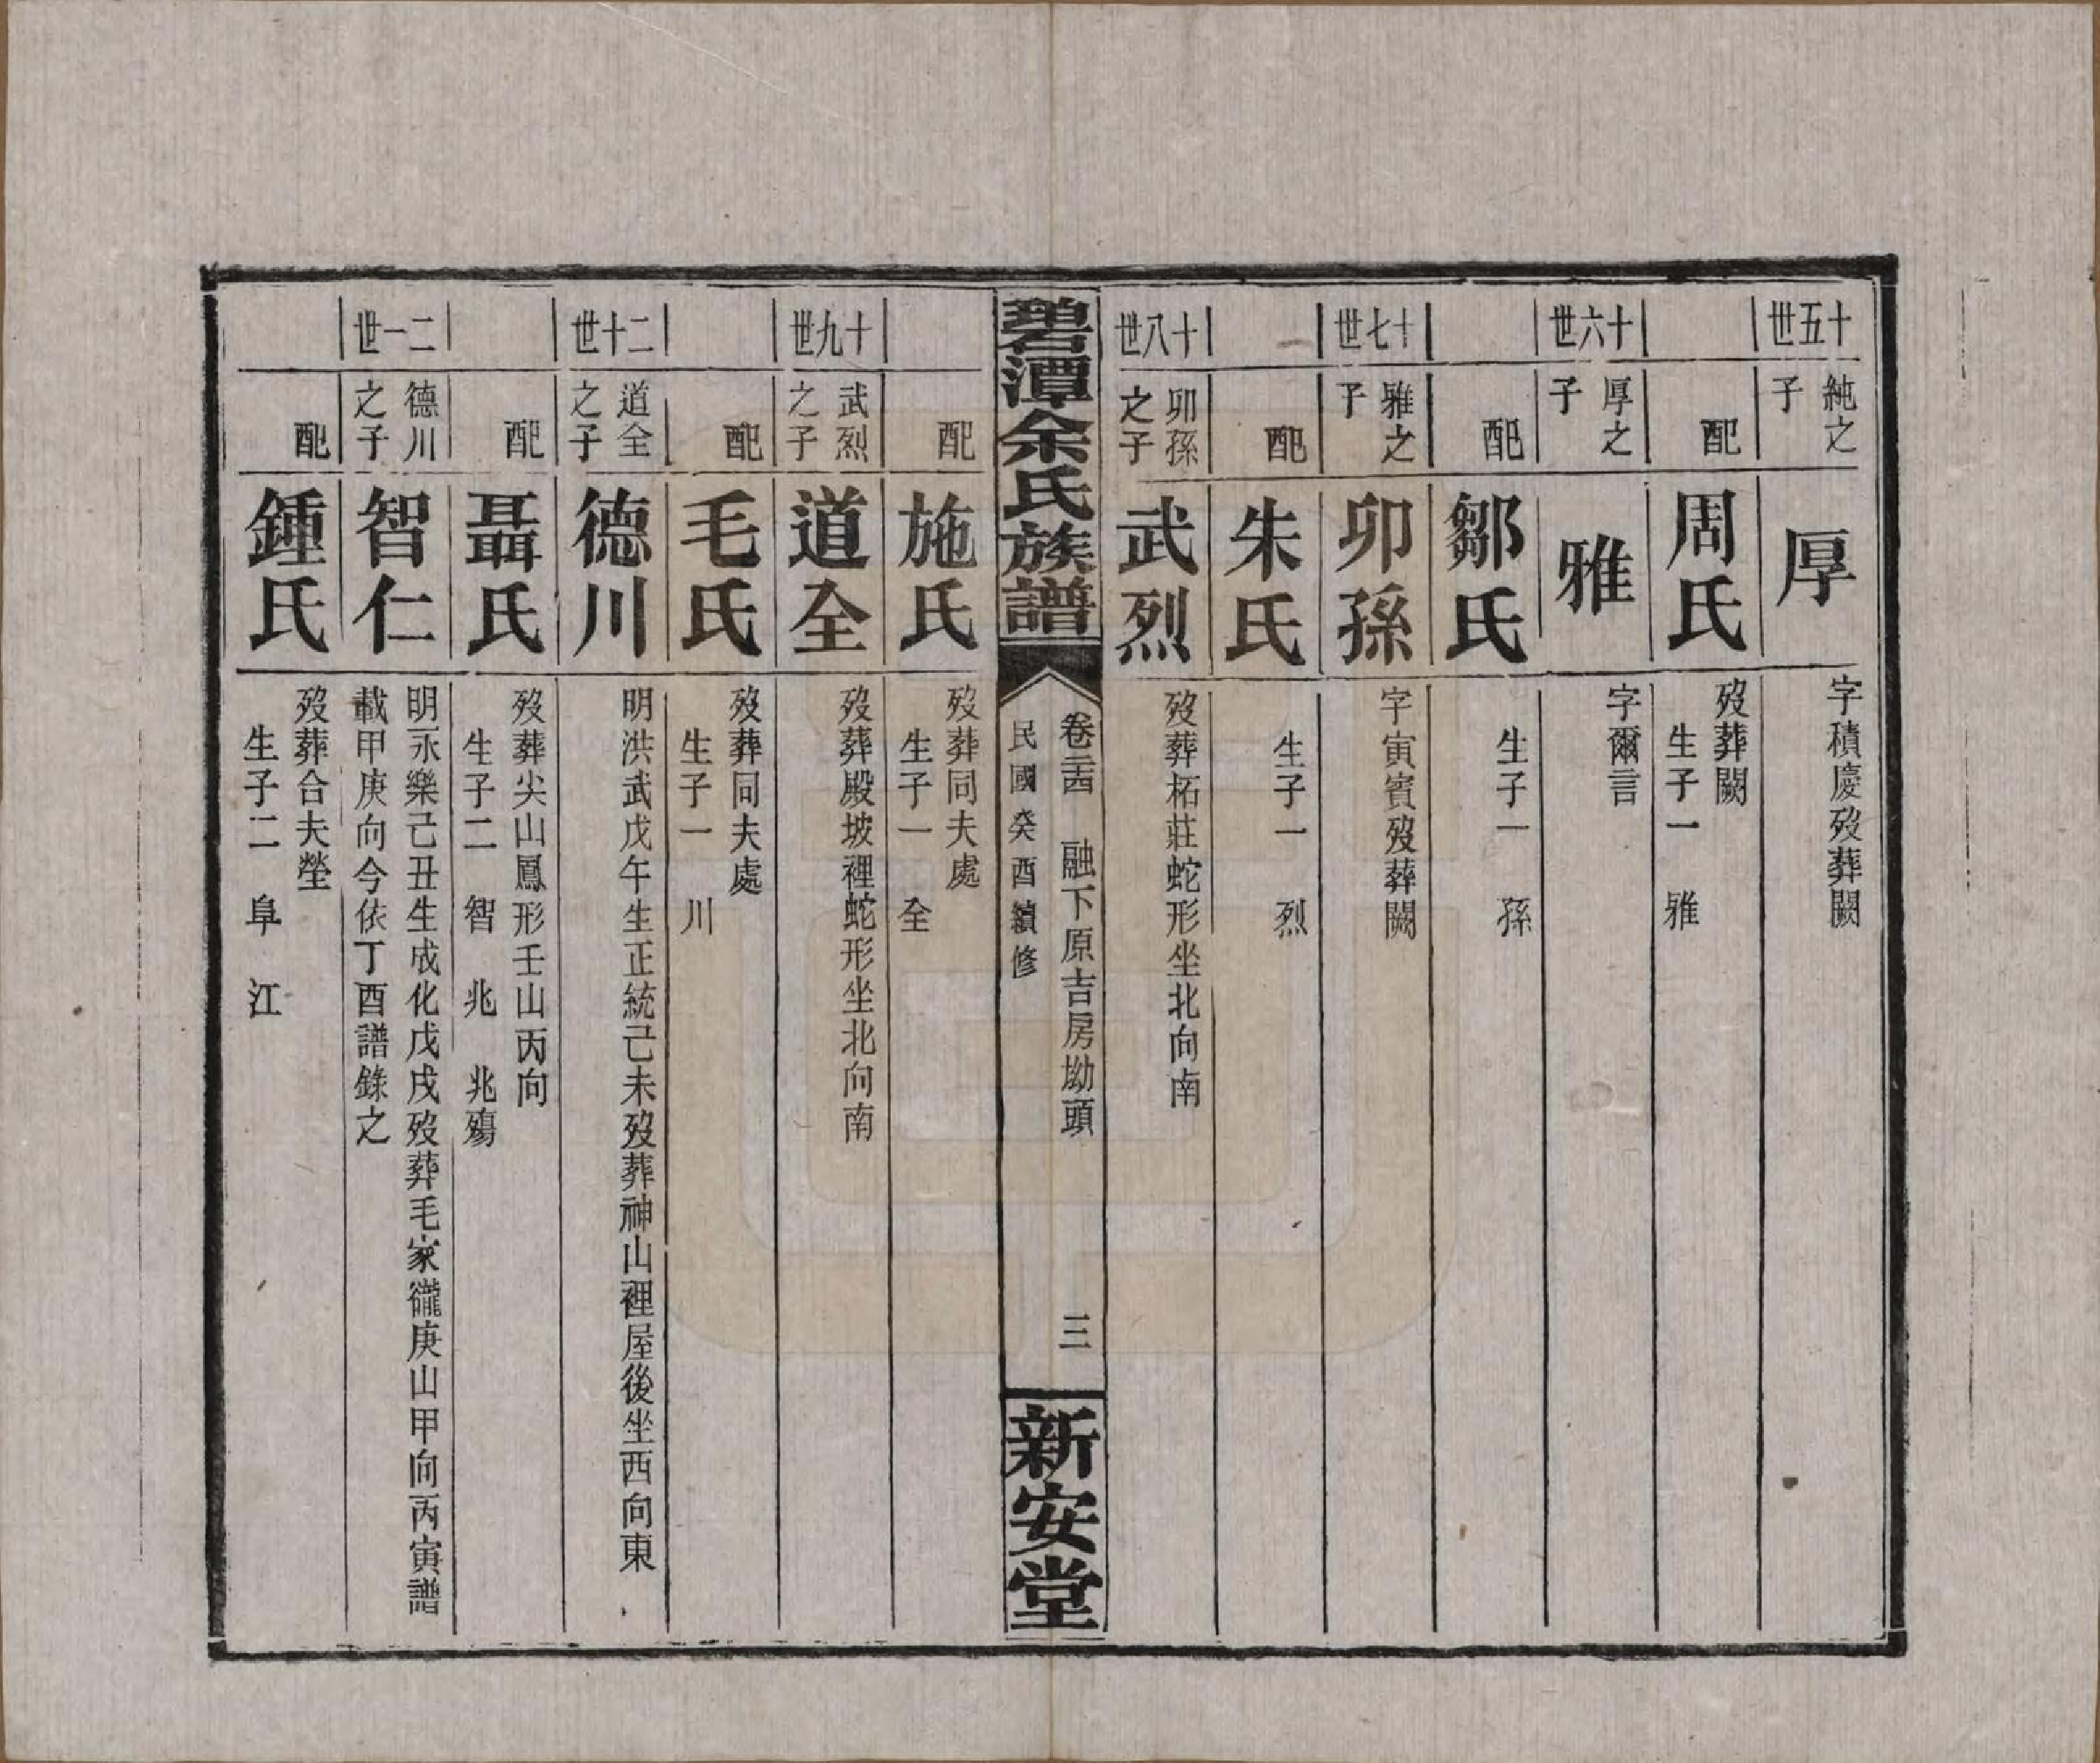 十五世
純之子
厚
字積慶歿葬闕
配
周氏
歿葬闕
生子一　雅
十六世
厚之子
雅
字爾言
配
鄒氏
生子一　孫
十七世
雅之子
卯孫
字寅賓歿葬闕
配
朱氏
生子一　烈
十八世
卯孫之子
武烈
歿葬柘莊蛇形坐北向南
碧潭余氏族譜
卷三西　融下原吉房坳頭
民國癸酉續修
三
新安堂
配
施氏
歿葬同夫處
生子一　全
十九世
武烈之子
道全
歿葬殿坡裡蛇形坐北向南
配
毛氏
歿葬同夫處
生子一　川
二十世
道全之子
德川
明洪武戊午生正統己未歿葬神山裡屋後坐西向東
配
聶氏
歿葬尖山鳳形壬山丙向
生子二　智　兆　兆殤
二一世
德川之子
智仁
明永樂己丑生成化戊戌歿葬毛家巃庚山甲向丙寅譜
載甲庚向今依丁酉譜錄之
配
鍾氏
歿葬合夫塋
生子二　阜　江